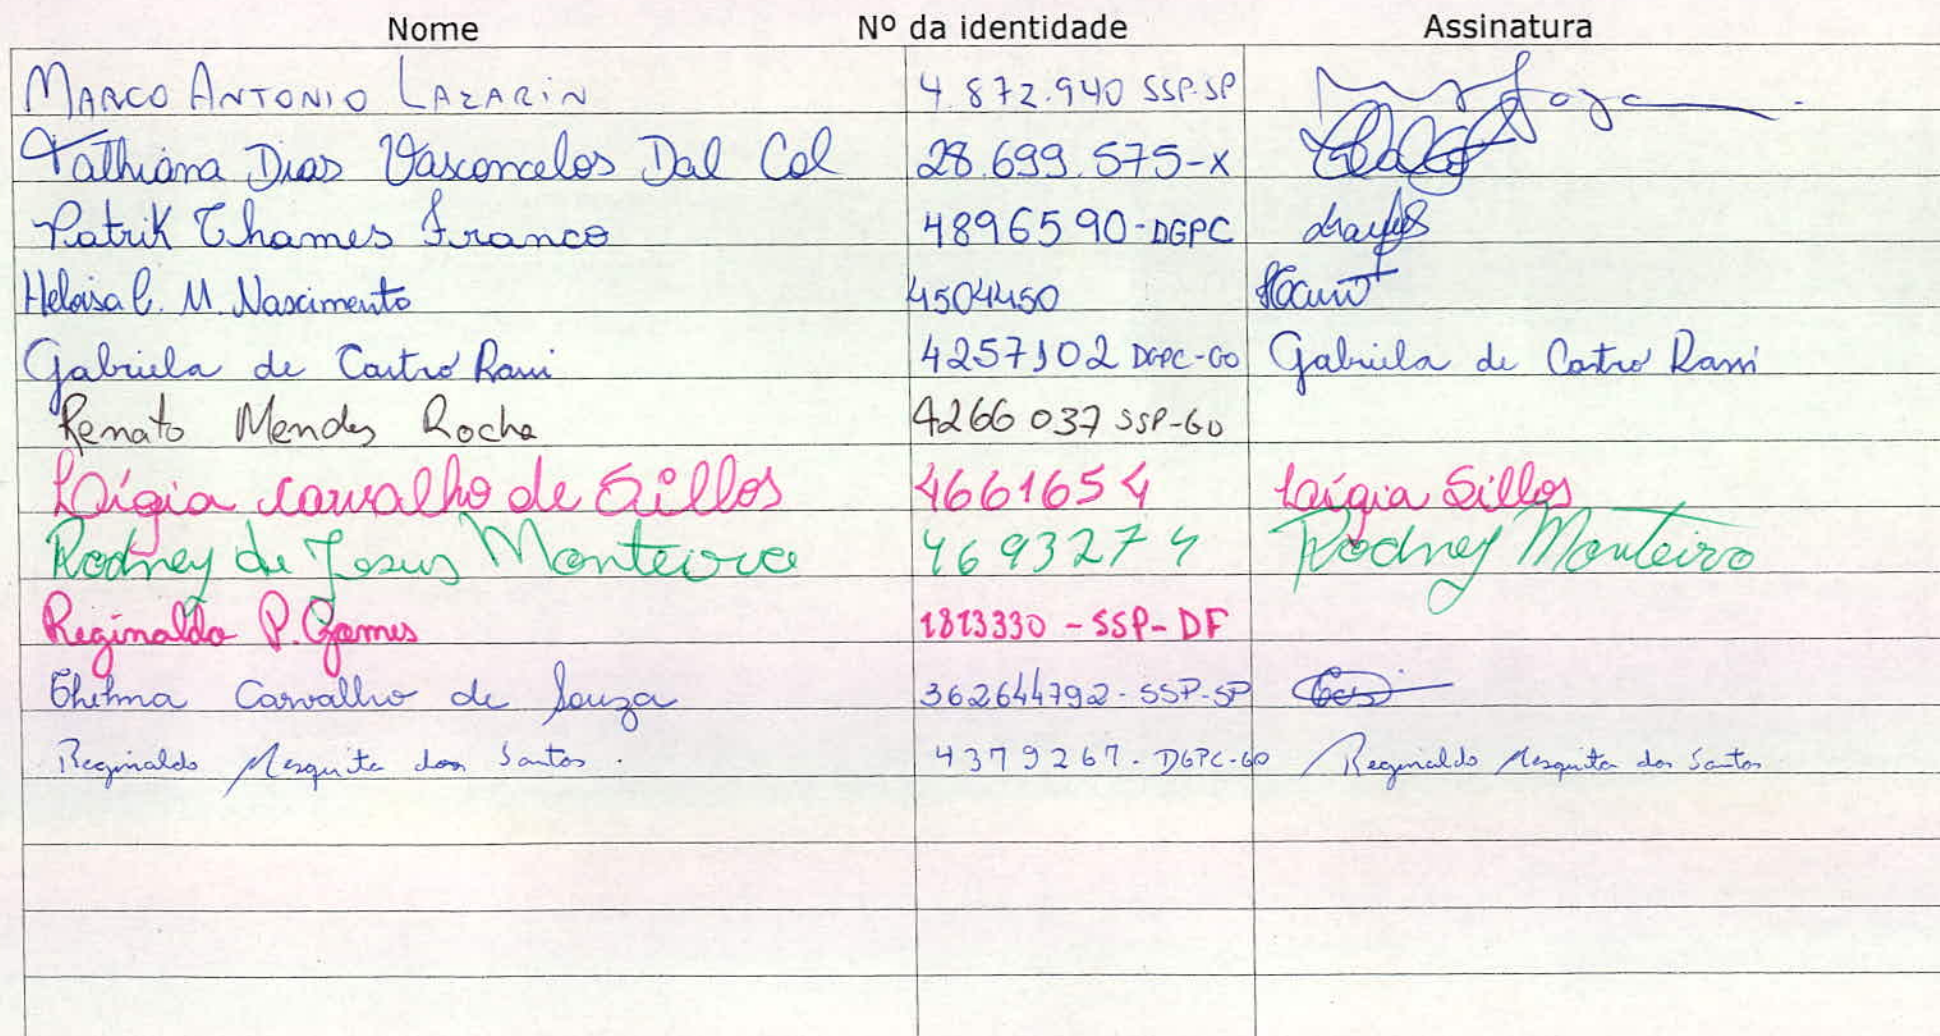 Nome Nº da identidade Assinatura
MARCO ANTONIO LAZARIN 4.872.940 SSP-SP
Tathiana Dias Vasconcelos Dal Col 28.699.575-X
Patrik Thames Franco 4896590-DGPC
Heloisa C. M. Nascimento 4504450
Gabriela de Castro Rami 4257102 DGPC-GO Gabriela de Castro Rami
Renato Mendes Rocha 4266037 SSP-GO
Lígia Carvalho de Sillos 4661654 Lígia Sillos
Rodney de Jesus Monteiro 4693274 Rodney Monteiro
Reginaldo P. Gomes 1813330 - SSP- DF
Thelma Carvalho de Souza 362644792- SSP-SP
Reginaldo Mesquita dos Santos. 4379267. DGPC-GO Reginaldo Mesquita dos Santos